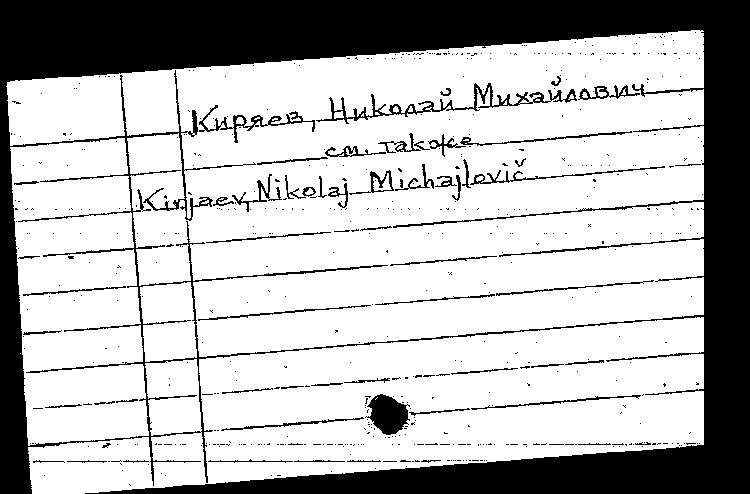 Киряев, Николай Михайлович
см. также
Kirjaev, Nikolaj Michajlovič.